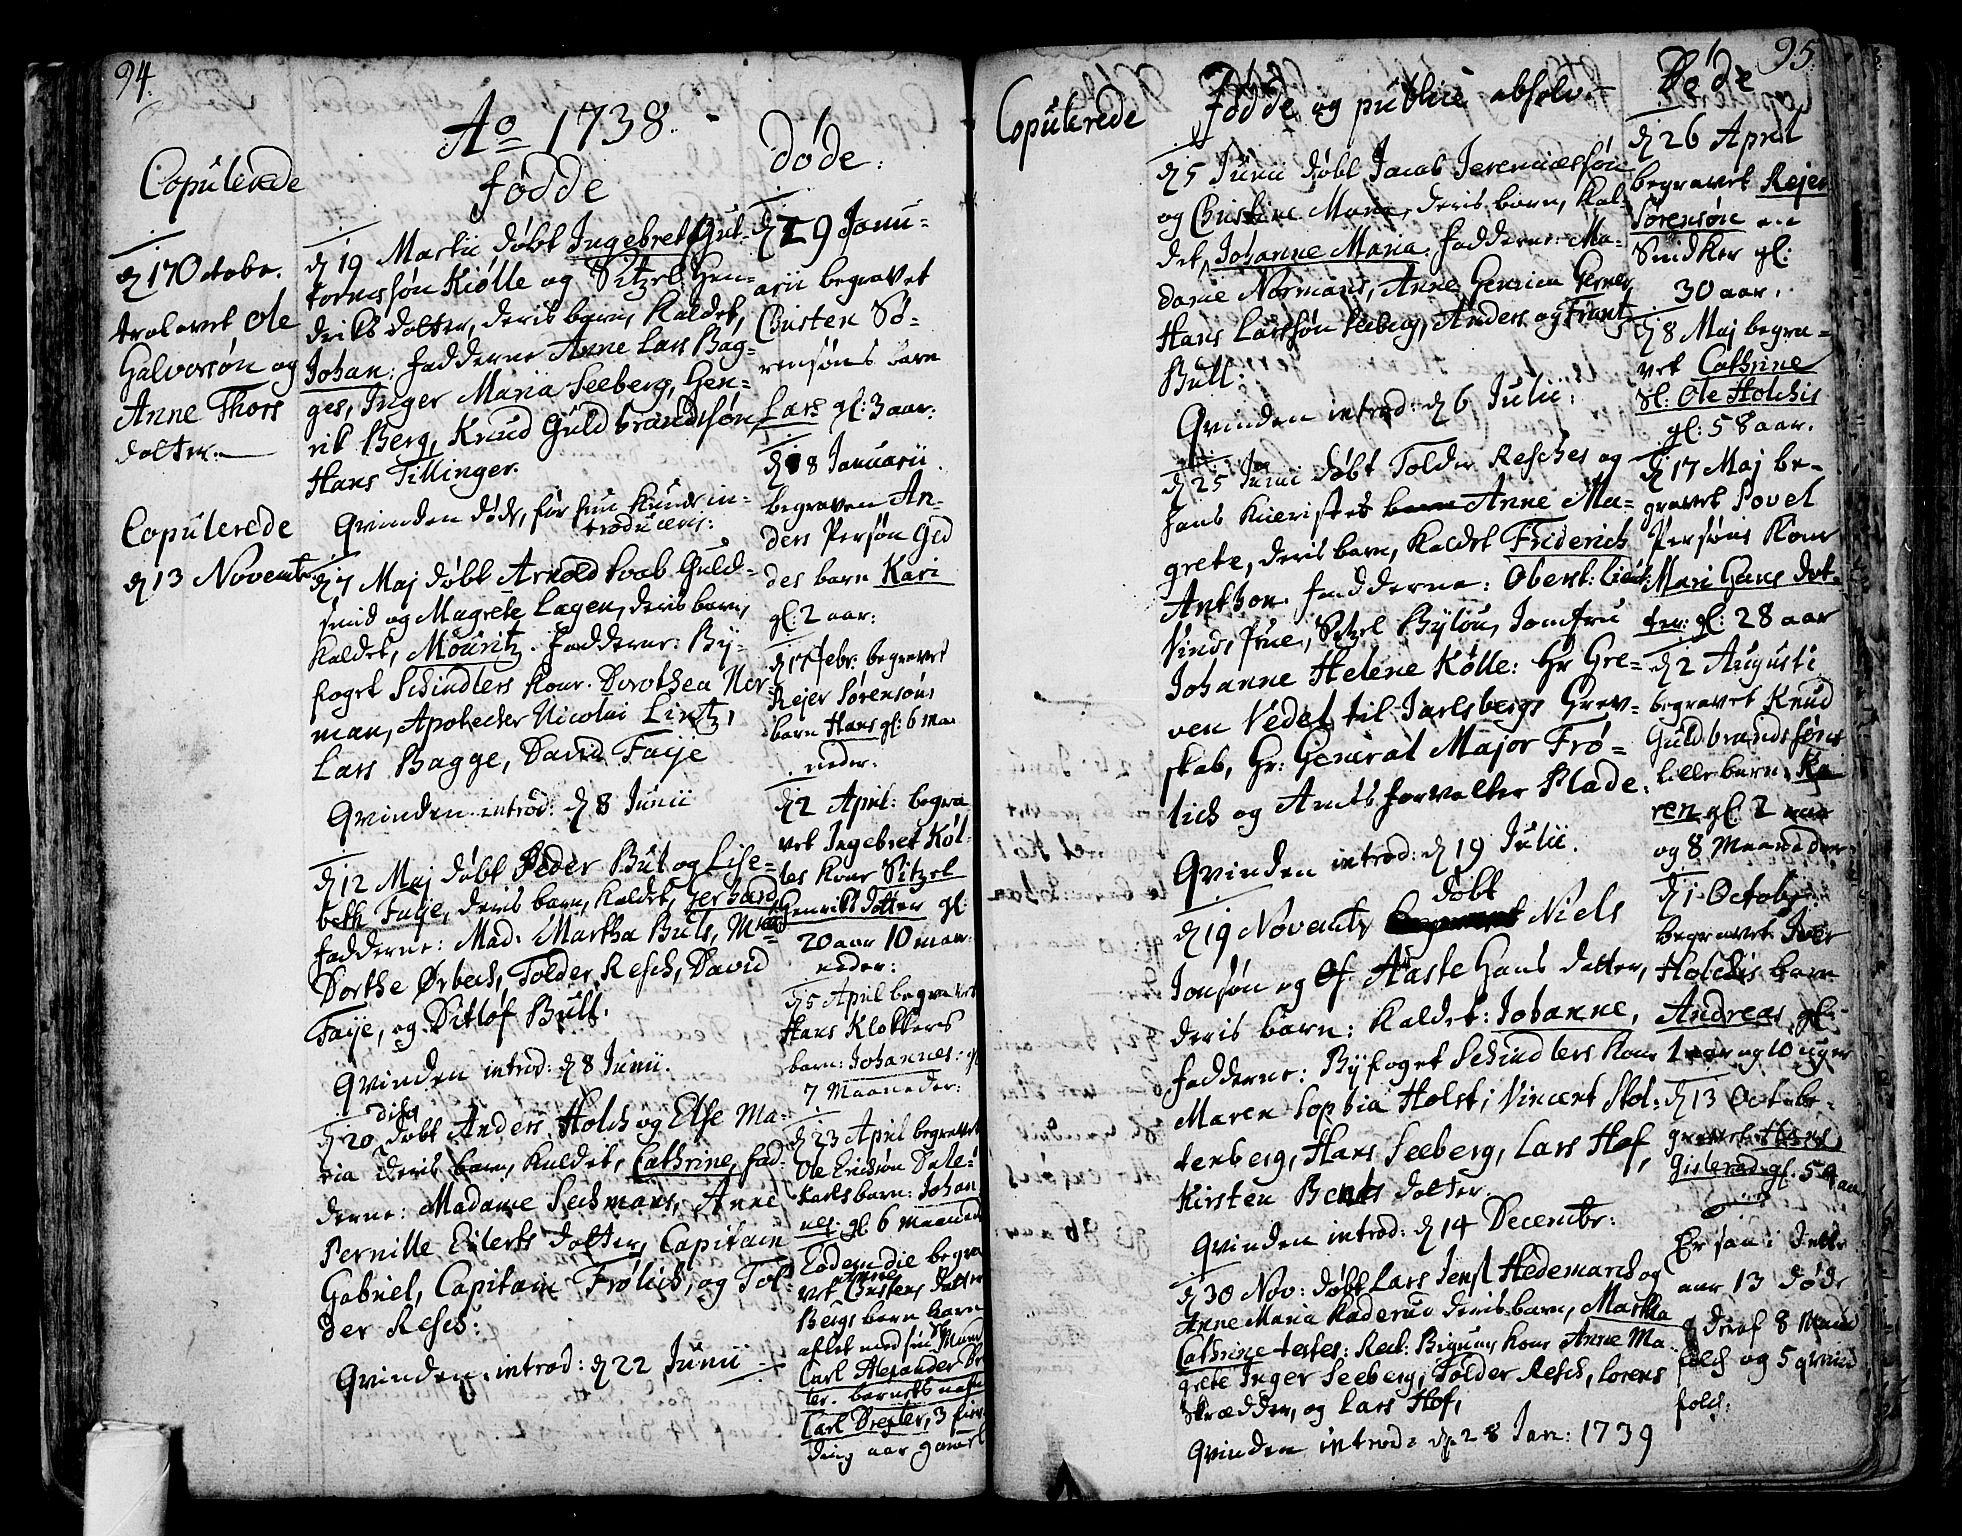 94.
Ao 1738.
Copulerede
d 17 Octobr.
trolovet Ole
Halvorsøn og
Anne Thors
dotter.
Copulerede
d 13 Novembr
fødde
d 19 Martii døbt Ingebret Gut-
tormssøn Kiølle og Sitzel Hen-
driks dotter, deris barn, Kaldet,
Johan. fadderne Anne Lars Bag-
ges, Inger Maria Seeberg, Hen-
rik Berg, Knud Guldbrandssøn
Hans Tillinger.
Qvinden døde, før hun kunde in-
troduceris:
d 7 Maj døbt Arnold Svab Guld-
smid og Magrete Lagen, deris barn,
Kaldet, Mouritz. fadderne: By-
foget Schindlers kone. Dorothea Nor-
man, Apotecker Nicolai Lintz,
Lars Bagge, David Faije
Qvinden introd: d 8 Junii
d 12 Maj døbt Peder But og Lise-
beth Faije, deris barn, Kaldet, Gerhard
fadderne: Mad. Martha Buts, Mad
Dorthe Ørbech, Tolder Resch, David
Faije, og Ditløf Bull.
Qvinden introd: d 8 Junii.
d 20 dito døbt Anders Holch og Else Ma-
ria deris barn, Kaldet, Cathrine, fad-
derne: Madame Sechmans, Anne
Pernille Eilerts dotter, Capitain
Gabriel, Capitain Frølich, og Tol-
der Resch:
Qvinden introd: d 22 Junii
døde:
d 29 Janu-
arii begravet
Christen Sø-
rensøns barn
Lars gl: 3 aar:
d 8 Januarii
begraven An-
ders Persøn
des barn Kari
gl: 2 aar:
d 17 Febr. begravet
Rejer Sørensøns
barn Hans gl: 6 maa
neder.
d 2 April: begra
vet Ingebret Køl-
les kone Sitzel
Henriks dotter gl:
20 aar 10 maa-
neder:
d 5 April begravet
Hans Klokkers
barn: Johannes: gl
7 Maaneder:
d 23 April begravet
Ole Ericksøn Dale-
karls barn: Johan
nes: gl 6 Maaneder
Eodem die begra
vet Anne Christens dotter
Bergs barn
aflet med sin Mand
Carl Alexander Drex
ter. barnets nafn
Carl Drexler, 3 fier
ding aar gamel
95.
Copulerede
Fødde og publice absolv:
d 5 Junii døbt Jacob Jeremiæssøn
og Christine Marie, deris barn, Kal-
det, Johanne Maria. fadderne: Ma-
dame Normans, Anne Henrica Gerner,
Hans Larssøn Seeberg, Anders og Frantz
Bull:
Qvinden introd: d 6 Julii:
d 25 Junii døbt Tolder Resches og
hans Kieristes Anne Ma-
grete, deris barn, Kaldet Friderich
Anthon. fadderne: Oberst: Lieut:
Vinds frue, Sitzel Bylou, Jomfru
Johanne Helene Kølle: Hr Gre-
ven Vedel til Jarlsbergs Grev-
skab, Hr: General Major Frø-
lich og Amtsforvalter Plade.
Qvinden introd: d 19 Julii.
døbt
d 19 Novembr Niels
Jonsøn og Aaste Hans dotter,
deris barn: Kaldet: Johanne,
fadderne: Byfoget Schindlers kone
Maren Sophia Holst, Vincent Stol-
tenberg, Hans Seeberg, Lars Hof,
Kirsten Bents dotter
Qvinden introd: d 14 Decembr:
d 30 Nov: døbt Lars Jens: Hedemarch og
Anne Maria Kaderud deris barn, Martha
Cathrine testes: Rect: Bigums kone Anne Ma-
grete Inger Seeberg, Tolder Resch, Lorens
Skrædder, og Lars Hof,
Qvinden introd: d 28 Jan: 1739
Døde
d 26 April
begravet Rejer
Sørensøn en
Snidker gl:
30 aar.
d 8 Maj begra-
vet Cathrine
Sl: Ole Holchis
gl: 58 aar.
d 17 Maj be-
gravet Povel
Persøns Kone
Mari Hans dot-
ter: gl: 28 aar
d 2 Augusti
begravet Knud
Guldbrandssøns
lille barn: Ka
ren gl: 2 aar
og 8 Maaneder
d 1 Octobr:
begravet Iver
Holchis barn
Andreas, gl:
1 aar og 10 uger
d 13 Octobr be-
gravet Hans
Gislerod gl: 59 aar
Er saa i dette
aar 13 døde
deraf 8 Mand
folch og 5 qvind
folch: